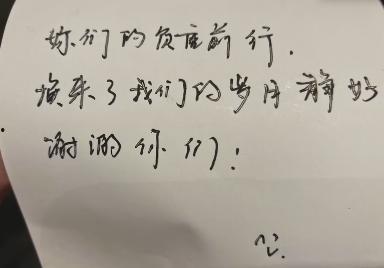 你们的负重前行.
换来了我们的岁月静好
谢谢你们!